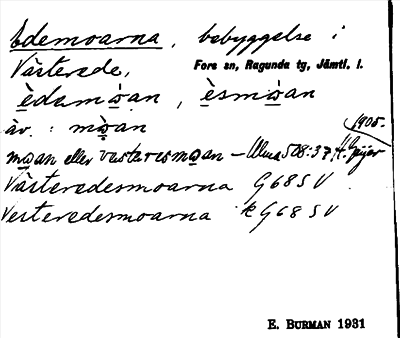 Edemoarna, bebyggelse i
Västerede, Fors sn, Ragunda tg, Jämtl. l.
èdamòan, èsmòan
äv.: mòan 1905.
moan eller västeresmoan – Ulma 578:37 H. Geijer
Västeredesmoarna G68 S V
Vesteredesmoarna k G68 S V
E. BURMAN 1931